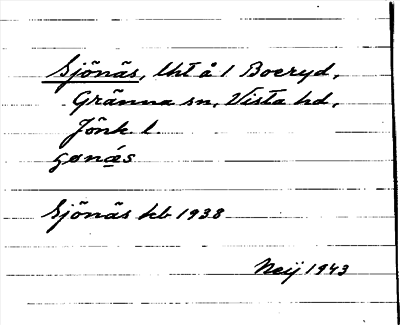 Sjönäs, lht å 1 Boeryd,
Gränna sn, Vista hd,
Jönk. l.
Sjönäs hb 1938
Neij 1943